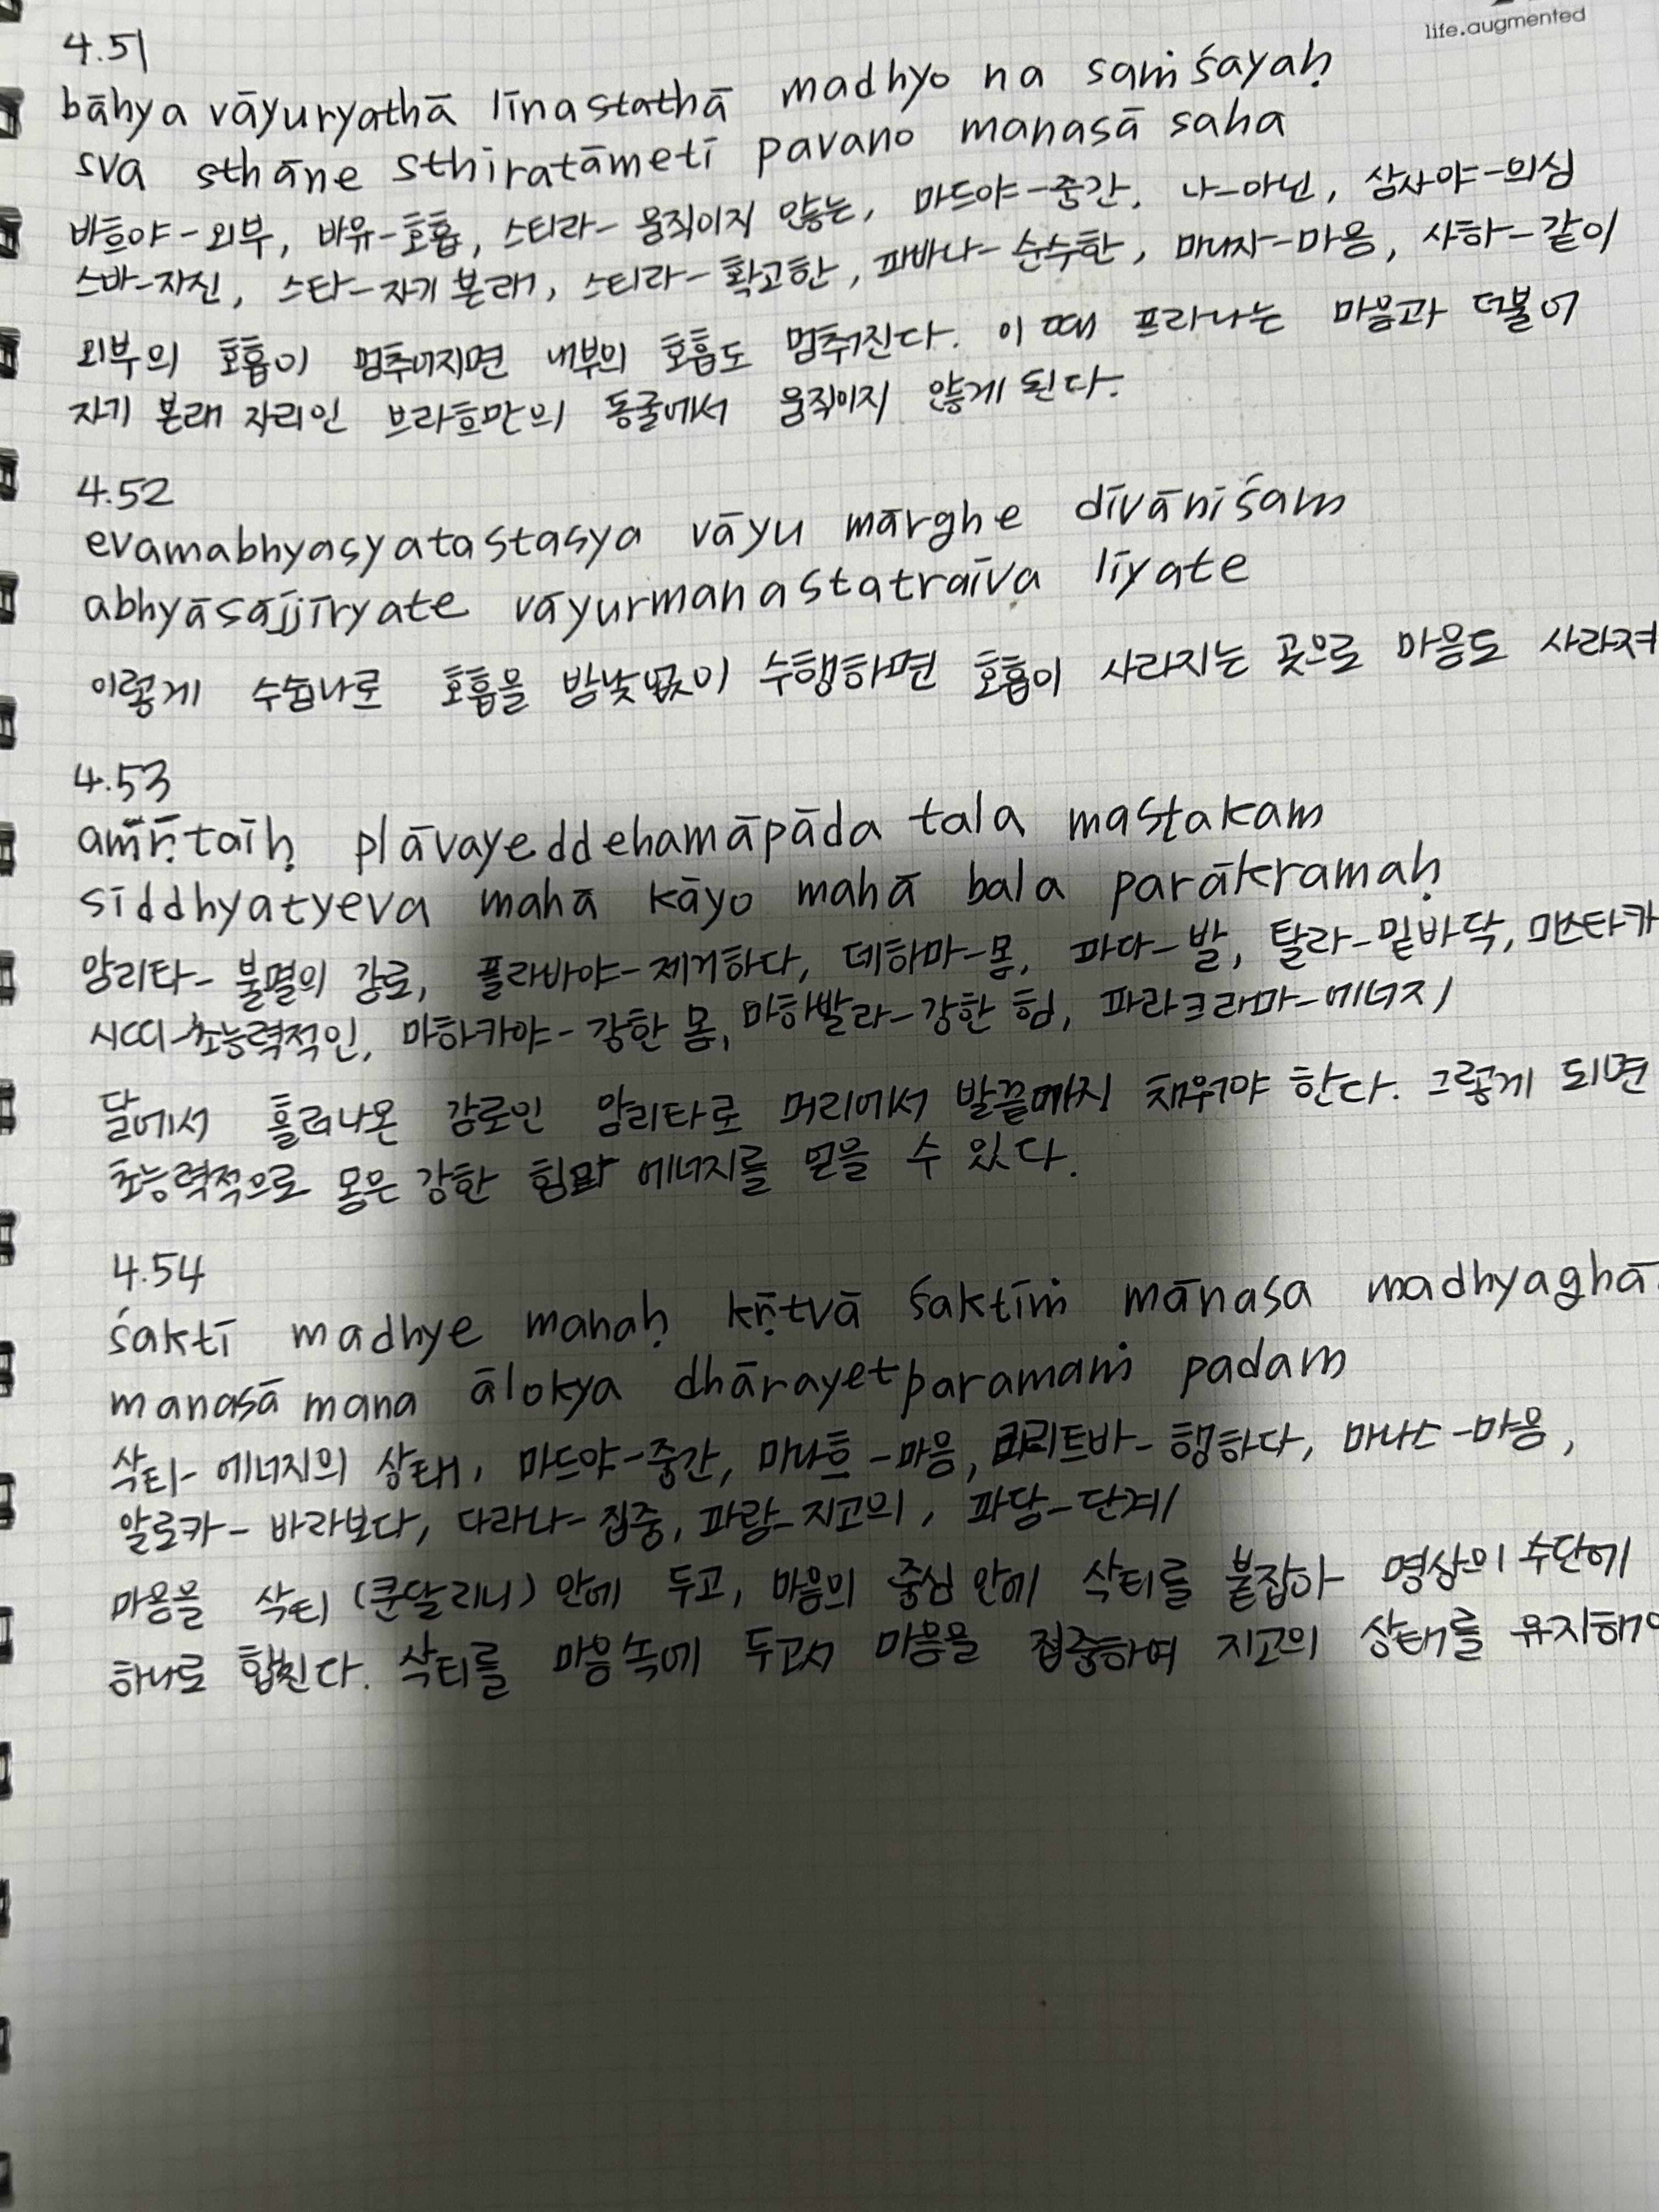 life.augmented
4.51
bāhya vāyuryathā līnastathā madhyo na saṁśayaḥ
sva sthāne sthiratāmetī pavano manasā saha
바흐야-외부, 바유-호흡, 스티라-움직이지 않는, 마드야-중간, 나-아닌, 삼사야-의심
스바-자신, 스타-자기 본래, 스티라-확고한, 파바나-순수한, 마나자-마음, 사하-같이
외부의 호흡이 멈추어지면 내부의 호흡도 멈춰진다. 이 때 프라나는 마음과 더불어
자기 본래 자리인 브라흐만의 동굴에서 움직이지 않게 된다.
4.52
evamabhyasyatastasya vāyu mārghe dīvāniśam
abhyāsājjīryate vāyurmanastatraīva līyate
이렇게 수슘나로 호흡을 밤낮없이 수행하면 호흡이 사라지는 곳으로 마음도 사라져
4.53
plāvayeddehamāpāda tala mastakam
sīddhyatyeva mahā kāyo mahā bala parākramaḥ
암리타-불멸의 감로, 플라바야-제거하다, 데하마-몸, 파다-발, 탈라-밑바닥, 마스타카
시띠-초능력적인, 마하카야-강한 몸, 마하발라-강한 힘, 파라크라마-에너지
달에서 흘러나온 감로인 암리타로 머리에서 발끝까지 채워야 한다. 그렇게 되면
초능력적으로 몸은 강한 힘과 에너지를 얻을 수 있다.
4.54
śaktī madhye manaḥ kṝtvā śaktīṁ mānasa madhyaghā
manasā mana ālokya dhārayetparamaṁ padam
삭티-에너지의 상태, 마드야-중간, 마나흐-마음, 크리트바-행하다, 마나스-마음,
알로카-바라보다, 다라나-집중, 파람-지고의, 파담-단계
마음을 삭티(쿤달리니) 안에 두고, 마음의 중심 안에 삭티를 붙잡아 명상의 수단에
하나로 합친다. 삭티를 마음속에 두고서 마음을 집중하여 지고의 상태를 유지해야